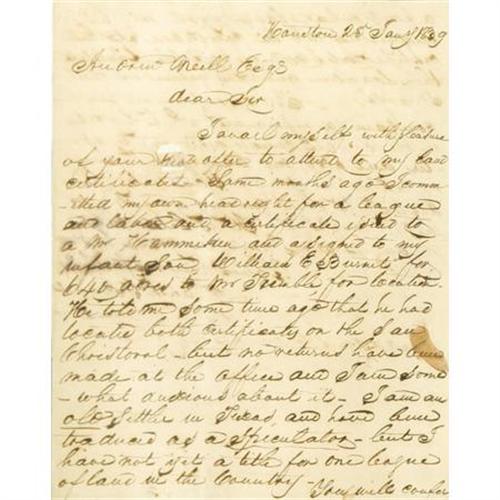 Houston 25 Jany 1839
Andrew Neill Esqr
Dear Sir
I avail myself with pleasure
of your kind offer to attend to my land
certificates - Some months ago I comm
-itted my own headright for a league
and labor and a certificate issued to
a Mr and assigned to my
infant Son, William E Burnet for
640 acres to Mr Trimble for location.
He told me some time ago that he had
located both certificates on the San
Christoval - but no returns have been
made at the office and I am some
- what anxious about it - I am an
old Settler in Texas, and have been
traduced as a Speculator - but I
have not yet a title for one league
of land in the Country -
You will confer